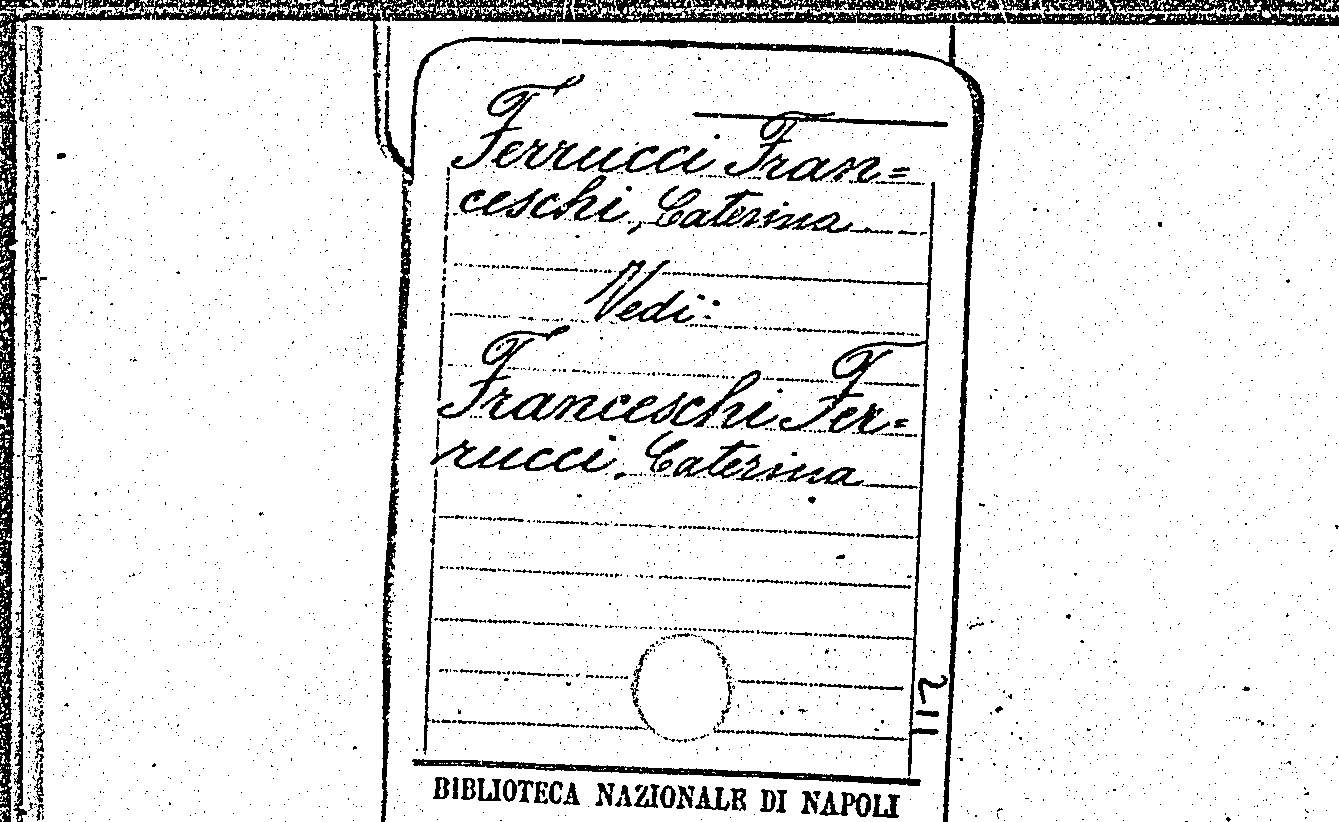 Ferrucci Fran=
ceschi, Caterina
Vedi:
Franceschi Fer=
rucci, Caterina
211
BIBLIOTECA NAZIONALE DI NAPOLI